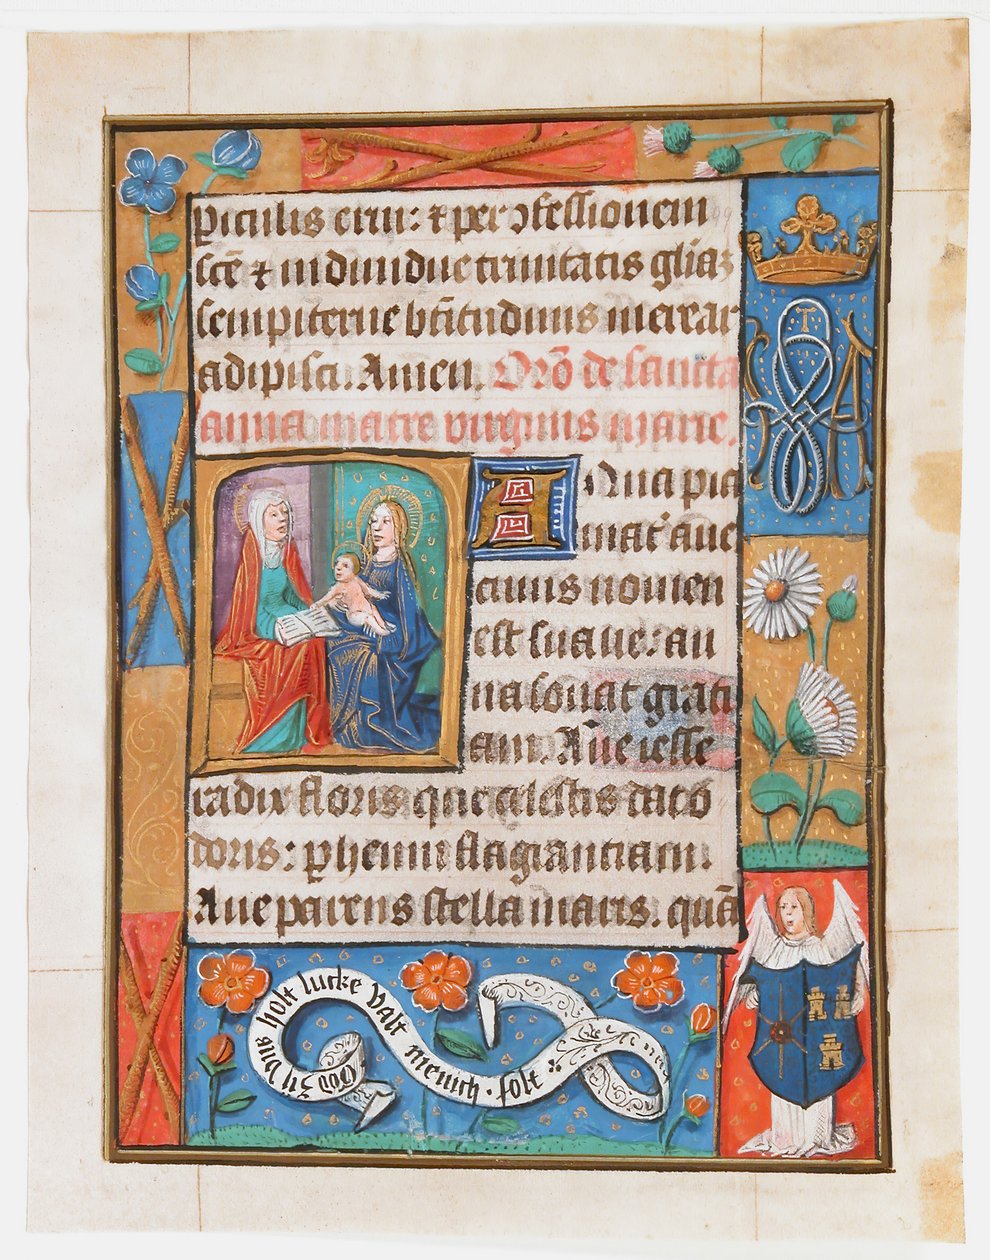 piculis erui: ⁊ per ɔfessionem
scē ⁊ indiuidue trinitatis gl̄iaʒ
sempiterne bt̄itudinis merear
adipisci. Amen. Orō de sancta
anna matre virginis marie.
ANna pia
mat̕ aue
cuius nomen
est suaue: an
na sonat grati
am. Aue iesse
radix floris que celestis dat o
doris: phenni flagranciam.
Aue parens stella maris. quā
God zij vns holt lucke valt menich · solt